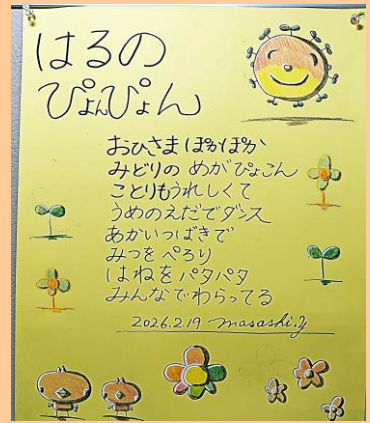 はるの
ぴょんぴょん
おひさま ぽかぽか
みどりの めが ぴょこん
ことりもうれしくて
うめのえだでダンス
あかいつばきで
みつを ぺろり
はねを パタパタ
みんなでわらってる
2026.2.19 masashi.y